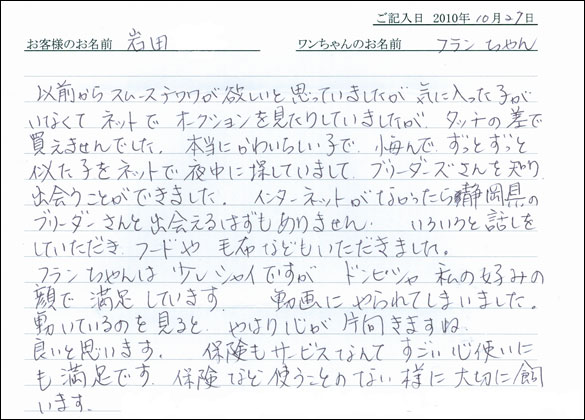 ご記入日 2010年 10月27日
お客様のお名前 岩田 ワンちゃんのお名前 フランちゃん
以前から スムースチワワが欲しいと思っていましたが 気に入った子が
いなくて ネットで オークションを見たりしていましたが タッチの差で
買えませんでした。 本当にかわいらしい子で、悔んで ずっとずっと
似た子をネットで夜中に探していまして ブリーダーズさんを知り
出会うことができました。 インターネットがなかったら静岡県の
ブリーダーさんと出会えるはずもありません。 いろいろと話しを
していただき フードや 毛布などもいただきました。
フランちゃんは 少しシャイですが ドンピシャ 私の好みの
顔で 満足しています。 動画に やられてしまいました。
動いているのを見ると やはり心が 片向きますね。
良いと思います。 保険もサービスなんて すごい心使いに
も満足です。 保険など使うことのない様に 大切に飼
います。